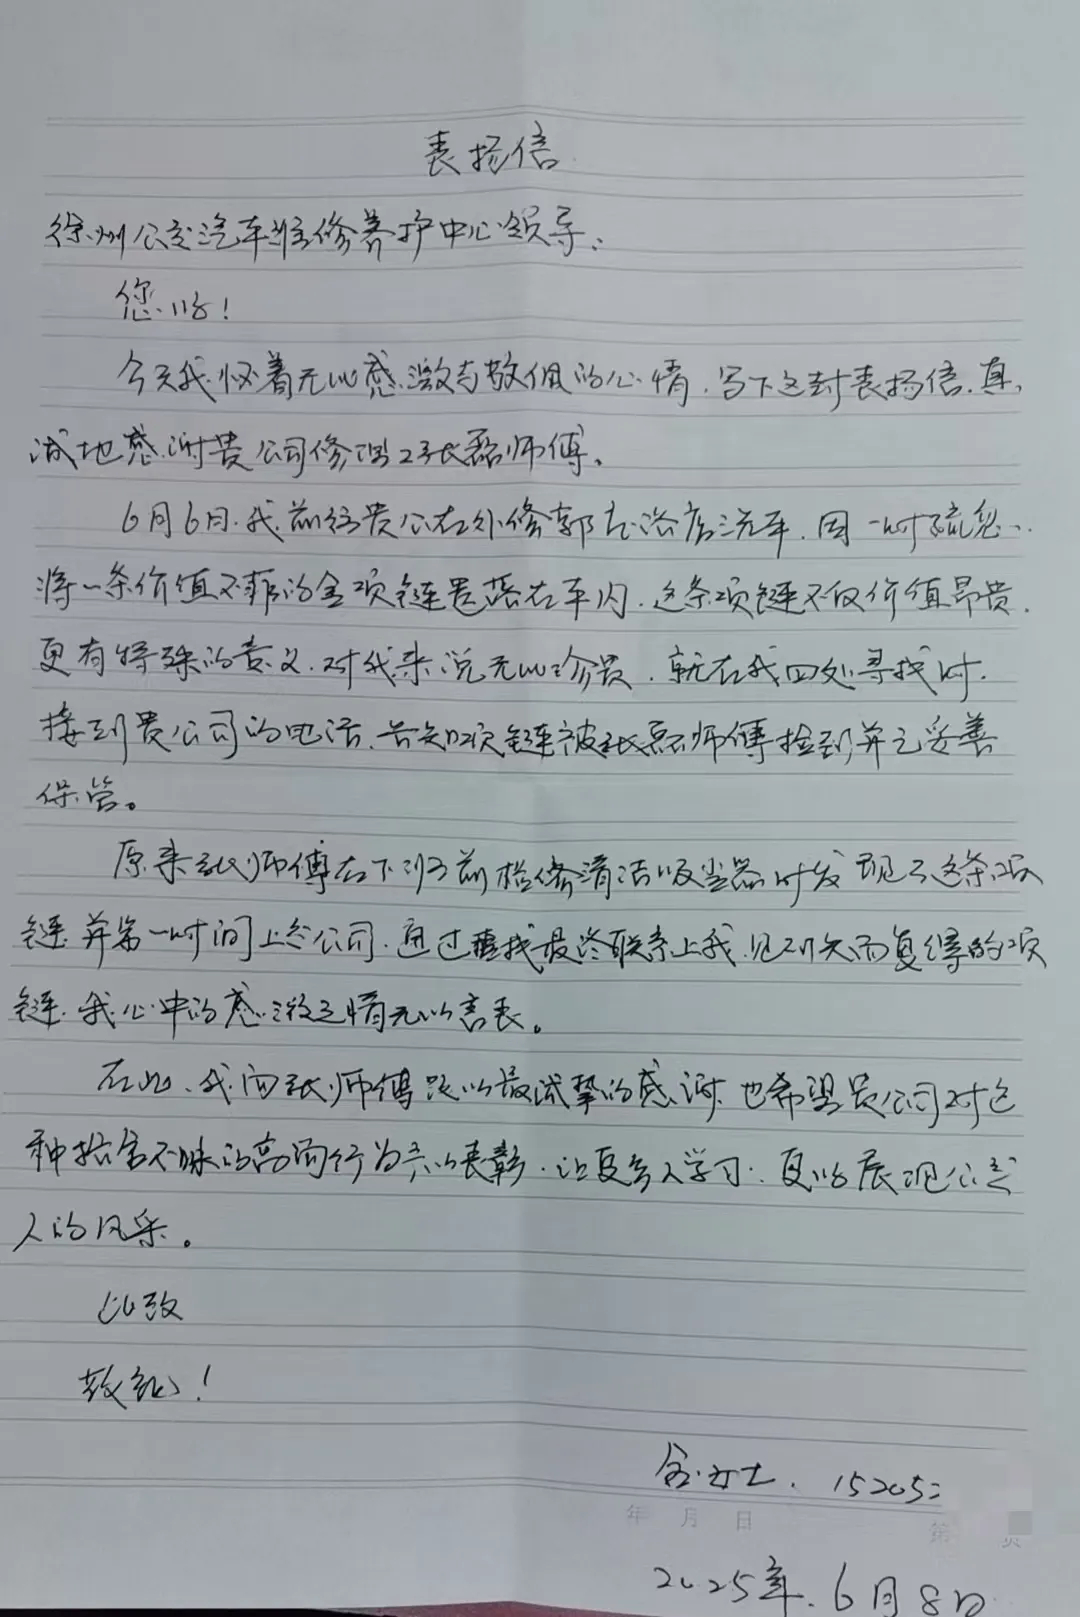 表扬信
徐州公交汽车维修养护中心领导：
您好！
今天我怀着无比感激与敬佩的心情，写下这封表扬信，真
诚地感谢贵公司修理工张磊师傅。
6月6日，我前往贵公在外修部店洗车，因一时疏忽，
将一条价值不菲的金项链遗落在车内，这条项链不仅价值昂贵，
更有特殊的意义，对我来说无比珍贵，就在我四处寻找时，
接到贵公司的电话，告知项链被张磊师傅捡到并已妥善
保管。
原来张师傅在下班前检修清洁吸尘器时发现了这条项
链，并第一时间上交公司，通过查找最终联系上我，见到失而复得的项
链，我心中的感激之情无以言表。
在此，我向张师傅致以最诚挚的感谢，也希望贵公司对这
种拾金不昧的高尚行为予以表彰，让更多人学习，更好展现公交
人的风采。
此致
敬礼！
女士，152052
年 月 日 第 页
2025年，6月8日